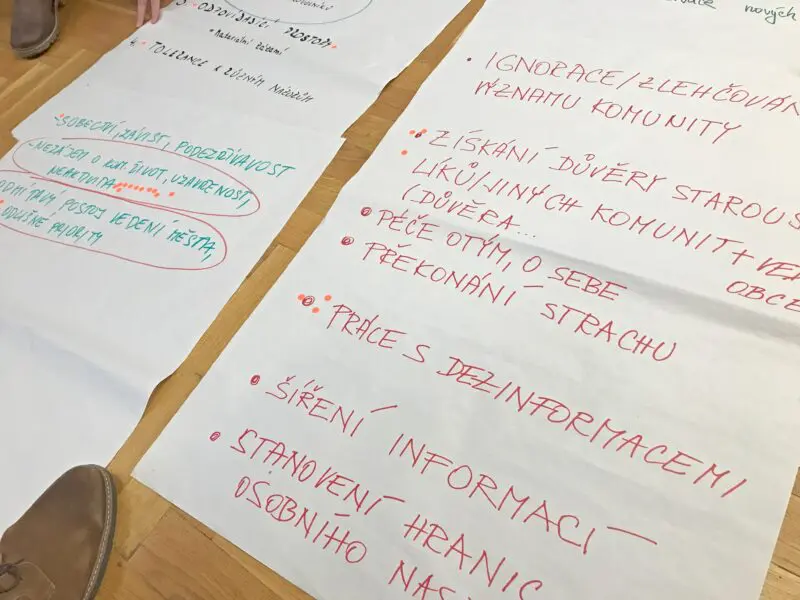 3. ODPOVÍDAJÍCÍ PROSTOR
• Materiální zázemí
4. TOLERANCE K RŮZNÝM NÁZORŮM
-SOBECTVÍ, ZÁVIST, PODEZÍRAVAVOST
-NEZÁJEM O KOM. ŽIVOT, UZAVŘENOST,
NEAKTIVITA
ODMÍTAVÝ POSTOJ VEDENÍ MĚSTA,
ODLIŠNÉ PRIORITY
nových
• IGNORACE/ZLEHČOVÁN
VÝZNAMU KOMUNITY
• ZÍSKÁNÍ DŮVĚRY STAROUS
LÍKŮ/JINÝCH KOMUNIT + VED
(DŮVĚRA... OBCE
• PÉČE O TÝM, O SEBE
• PŘEKONÁNÍ STRACHU
• PRÁCE S DEZINFORMACEMI
• ŠÍŘENÍ INFORMACÍ —
• STANOVENÍ HRANIC
OSOBNÍHO NAS